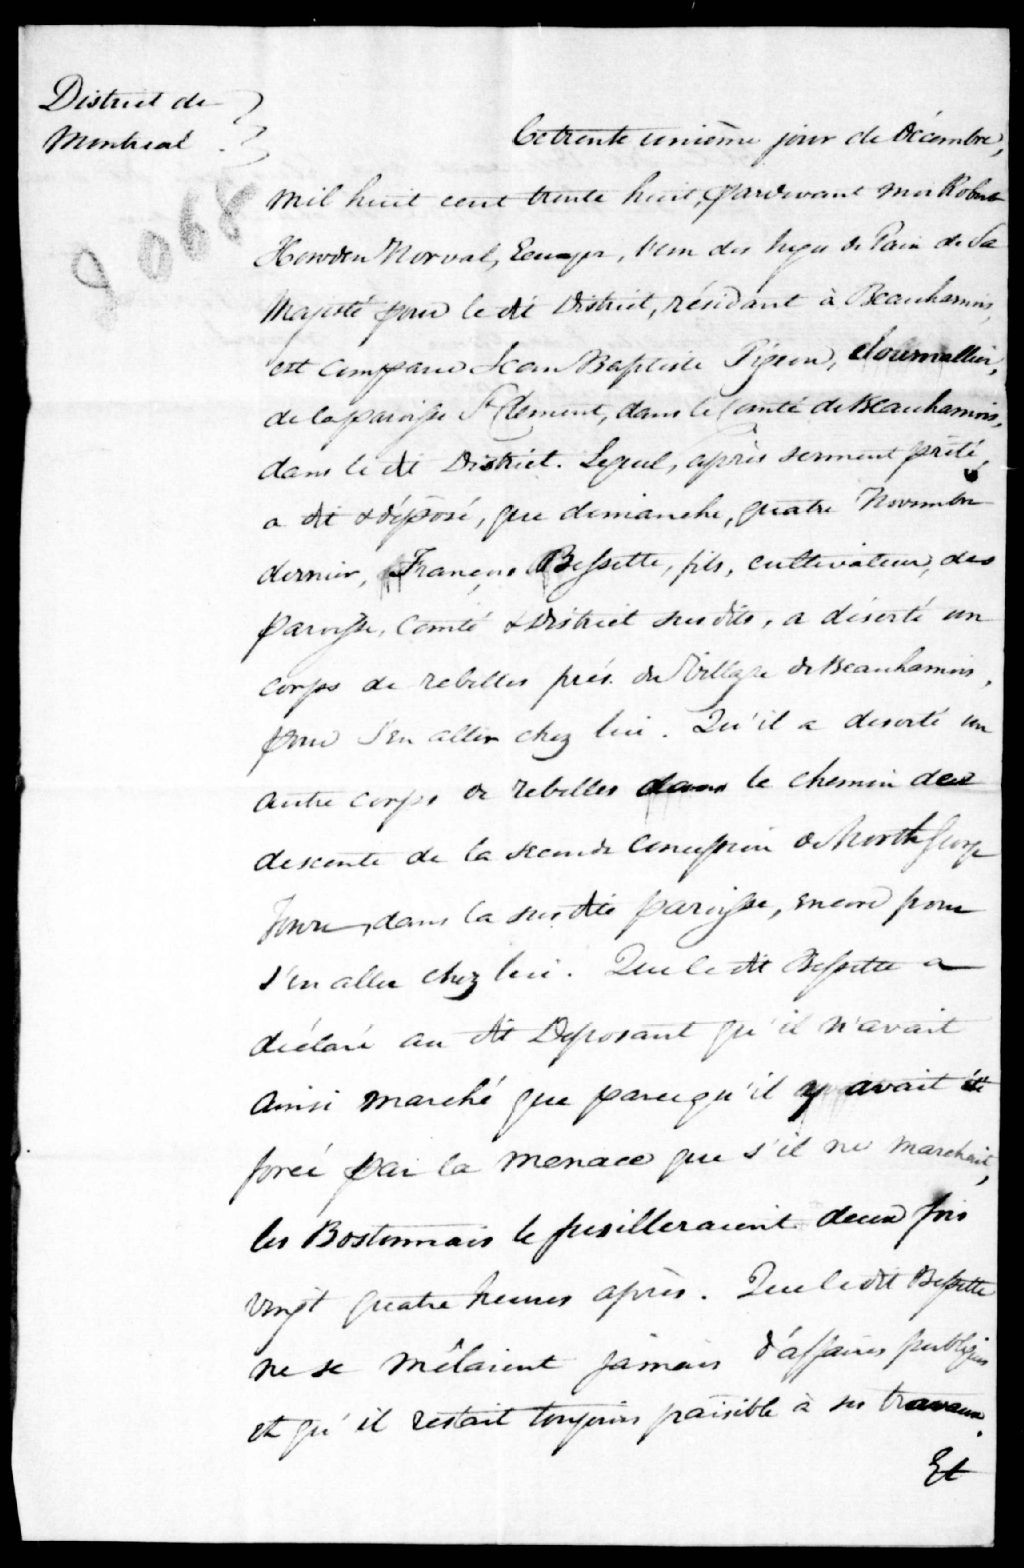 District de
Montreal
8068
Ce trente unième jour de Décembre,
mil huit cent trente huit, pardevant moi Robert
Howden Norval, Ecuyer, l'un des Juges de Paix de Sa
Majesté pour le dit District, résidant à Beauharnois,
est comparu Jean Baptiste Pigeon, Journallier,
de la paroisse St Clément, dans le Comté de Beauharnois,
dans le dit District. Lequel, après serment prêté,
a dit & déposé, que dimanche, quatre Novembre
dernier, François Bessette, fils, cultivateur, des
paroisse, Comté & District susdits, a déserté un
corps de rebelles près du Village de Beauharnois,
pour s'en aller chez lui. Qu'il a deserté un
autre corps de rebelles dans le chemin de
descente de la seconde concession de North George
Town, dans la susdite paroisse, encore pour
s'en aller chez lui. Que le dit Bessette a
déclaré au dit Deposant qu'il n'avait
ainsi marché que parcequ'il y avait été
forcé par la menace que s'il ne marchait,
les Bostonnais le fusilleraient deux fois
vingt quatre heures après. Que le dit Bessette
ne se mêlaient jamais d'affaires publiques
et qu'il restait toujours paisible à ses travaux.
Et